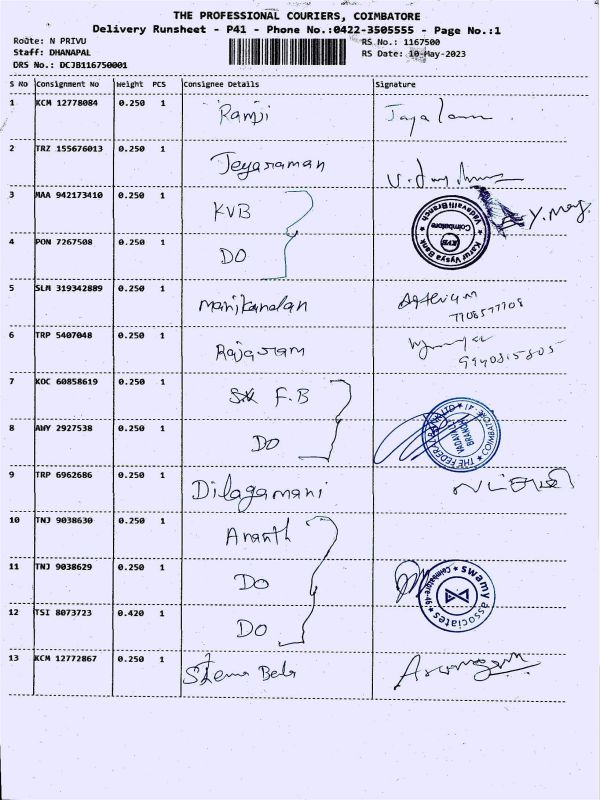 THE PROFESSIONAL COURIERS, COIMBATORE
Delivery Runsheet - P41 - Phone No.:0422-3505555 - Page No.:1
Route: N PRIVU
RS.No.: 1167500
Staff: DHANAPAL
RS Date: 10-May-2023
DRS No.: DCJB116750001
S No Consignment No Weight PCS Consignee Details Signature
1 KCM 12778084 0.250 1 Ramji
2 TRZ 155676013 0.250 1 Jeyaraman
3 MAA 942173410 0.250 1 KVB
Karur Vysya Bank Vadavalli Branch KVB Coimbatore
4 PON 7267508 0.250 1 DO
5 SLM 319342889 0.250 1 Manikandan
7708577708
6 TRP 5407048 0.250 1 Rajaram
9940815805
7 KOC 60858619 0.250 1 F.B
8 AWY 2927538 0.250 1 DO
THE FEDERAL BANK LTD VADAVALLI BRANCH COIMBATORE
9 TRP 6962686 0.250 1 Dilagamani
10 TNJ 9038630 0.250 1 Ananth
11 TNJ 9038629 0.250 1 DO
swamy associates Coimbatore
12 TSI 8073723 0.420 1 DO
13 KCM 12772867 0.250 1